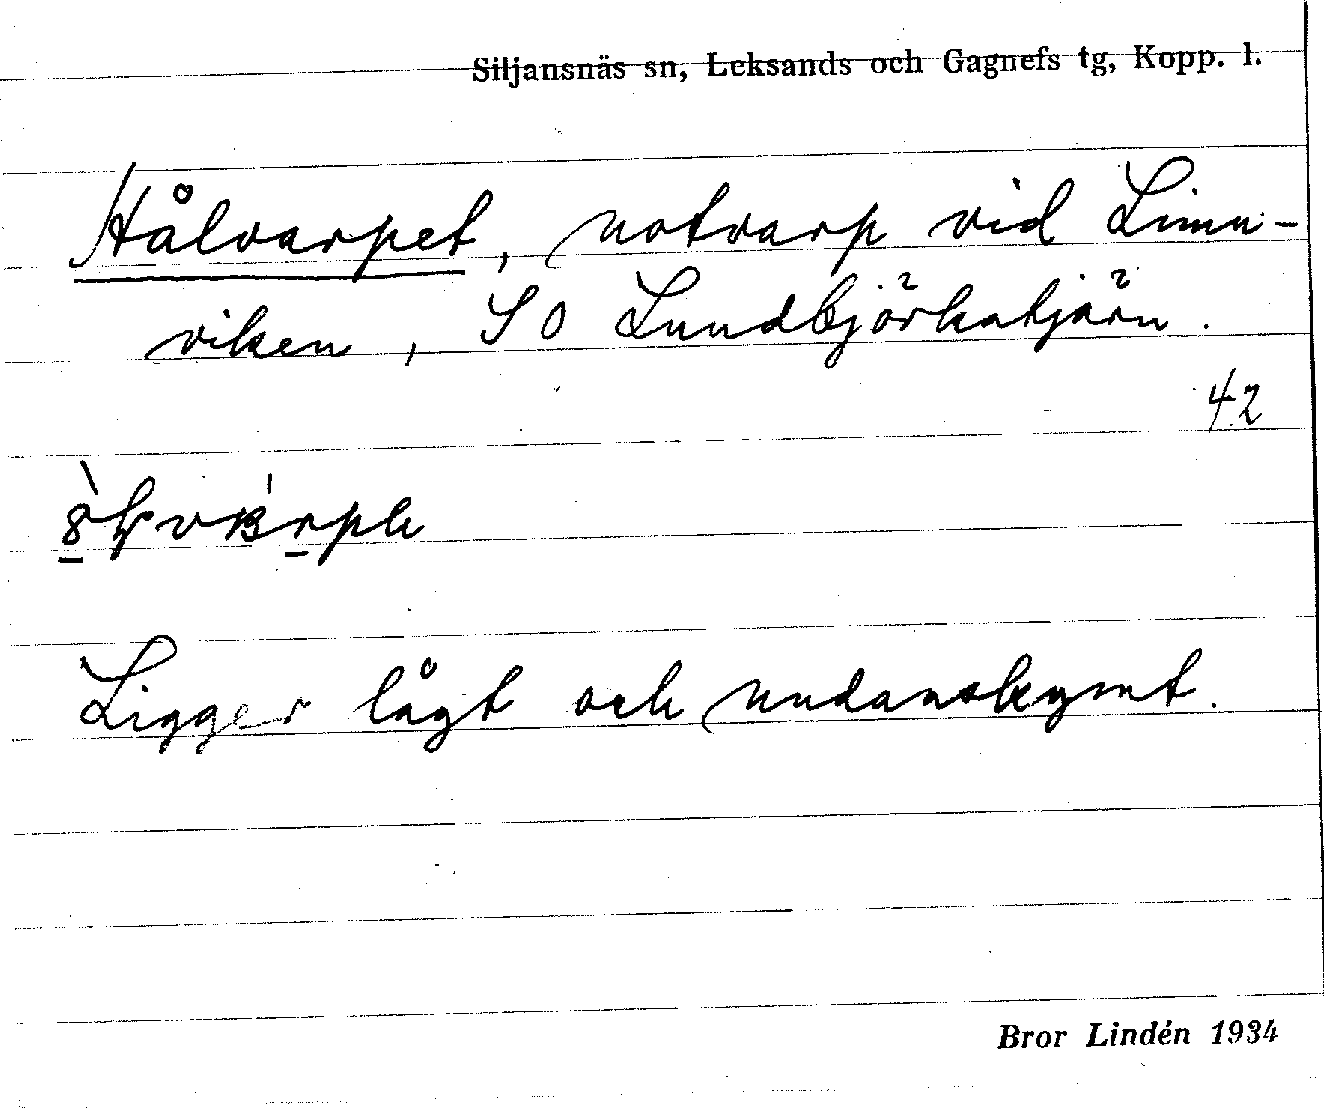 Siljansnäs sn, Leksands och Gagnefs tg, Kopp. l.
Hålvarpet, notvarp vid Limu-
viken, SO Lundbjörkatjärn.
42
Ligger lågt och undanskymt.
Bror Lindén 1934